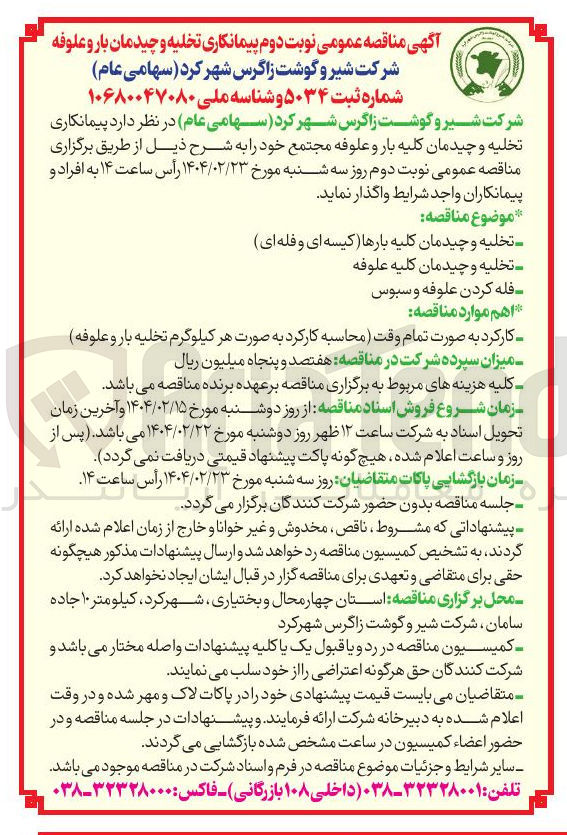 آگهی مناقصه عمومی نوبت دوم پیمانکاری تخلیه و چیدمان بار و علوفه
شرکت شیر و گوشت زاگرس شهرکرد (سهامی عام)
شماره ثبت ۵۰۳۴ و شناسه ملی ۱۰۶۸۰۰۴۷۰۸۰
شرکت شیر و گوشت زاگرس شهرکرد (سهامی عام) در نظر دارد پیمانکاری
تخلیه و چیدمان کلیه بار و علوفه مجتمع خود را به شرح ذیل از طریق برگزاری
مناقصه عمومی نوبت دوم روز سه شنبه مورخ ۱۴۰۴/۰۲/۲۳ رأس ساعت ۱۴ به افراد و
پیمانکاران واجد شرایط واگذار نماید.
*موضوع مناقصه:
- تخلیه و چیدمان کلیه بارها (کیسه ای و فله ای)
- تخلیه و چیدمان کلیه علوفه
- فله کردن علوفه و سبوس
*اهم موارد مناقصه:
- کارکرد به صورت تمام وقت (محاسبه کارکرد به صورت هر کیلوگرم تخلیه بار و علوفه)
- میزان سپرده شرکت در مناقصه: هفتصد و پنجاه میلیون ریال
- کلیه هزینه های مربوط به برگزاری مناقصه بر عهده برنده مناقصه می باشد.
- زمان شروع فروش اسناد مناقصه: از روز دوشنبه مورخ ۱۴۰۴/۰۲/۱۵ و آخرین زمان
تحویل اسناد به شرکت ساعت ۱۲ ظهر روز دوشنبه مورخ ۱۴۰۴/۰۲/۲۲ می باشد. (پس از
روز و ساعت اعلام شده، هیچ گونه پاکت پیشنهاد قیمتی دریافت نمی گردد).
- زمان بازگشایی پاکات متقاضیان: روز سه شنبه مورخ ۱۴۰۴/۰۲/۲۳ رأس ساعت ۱۴.
- جلسه مناقصه بدون حضور شرکت کنندگان برگزار می گردد.
- پیشنهاداتی که مشروط، ناقص، مخدوش و غیر خوانا و خارج از زمان اعلام شده ارائه
گردند، به تشخیص کمیسیون مناقصه رد خواهد شد و ارسال پیشنهادات مذکور هیچگونه
حقی برای متقاضی و تعهدی برای مناقصه گزار در قبال ایشان ایجاد نخواهد کرد.
- محل برگزاری مناقصه: استان چهارمحال و بختیاری، شهرکرد، کیلومتر ۱۰ جاده
سامان، شرکت شیر و گوشت زاگرس شهرکرد
- کمیسیون مناقصه در رد و یا قبول یک یا کلیه پیشنهادات واصله مختار می باشد و
شرکت کنندگان حق هرگونه اعتراضی را از خود سلب می نمایند.
- متقاضیان می بایست قیمت پیشنهادی خود را در پاکات لاک و مهر شده و در وقت
اعلام شده به دبیرخانه شرکت ارائه فرمایند. و پیشنهادات در جلسه مناقصه و در
حضور اعضاء کمیسیون در ساعت مشخص شده بازگشایی می گردند.
- سایر شرایط و جزئیات موضوع مناقصه در فرم و اسناد شرکت در مناقصه موجود می باشد.
تلفن: ۳۲۳۲۸۰۰۱-۰۳۸ (داخلی ۱۰۸ بازرگانی) - فاکس: ۳۲۳۲۸۰۰۰-۰۳۸